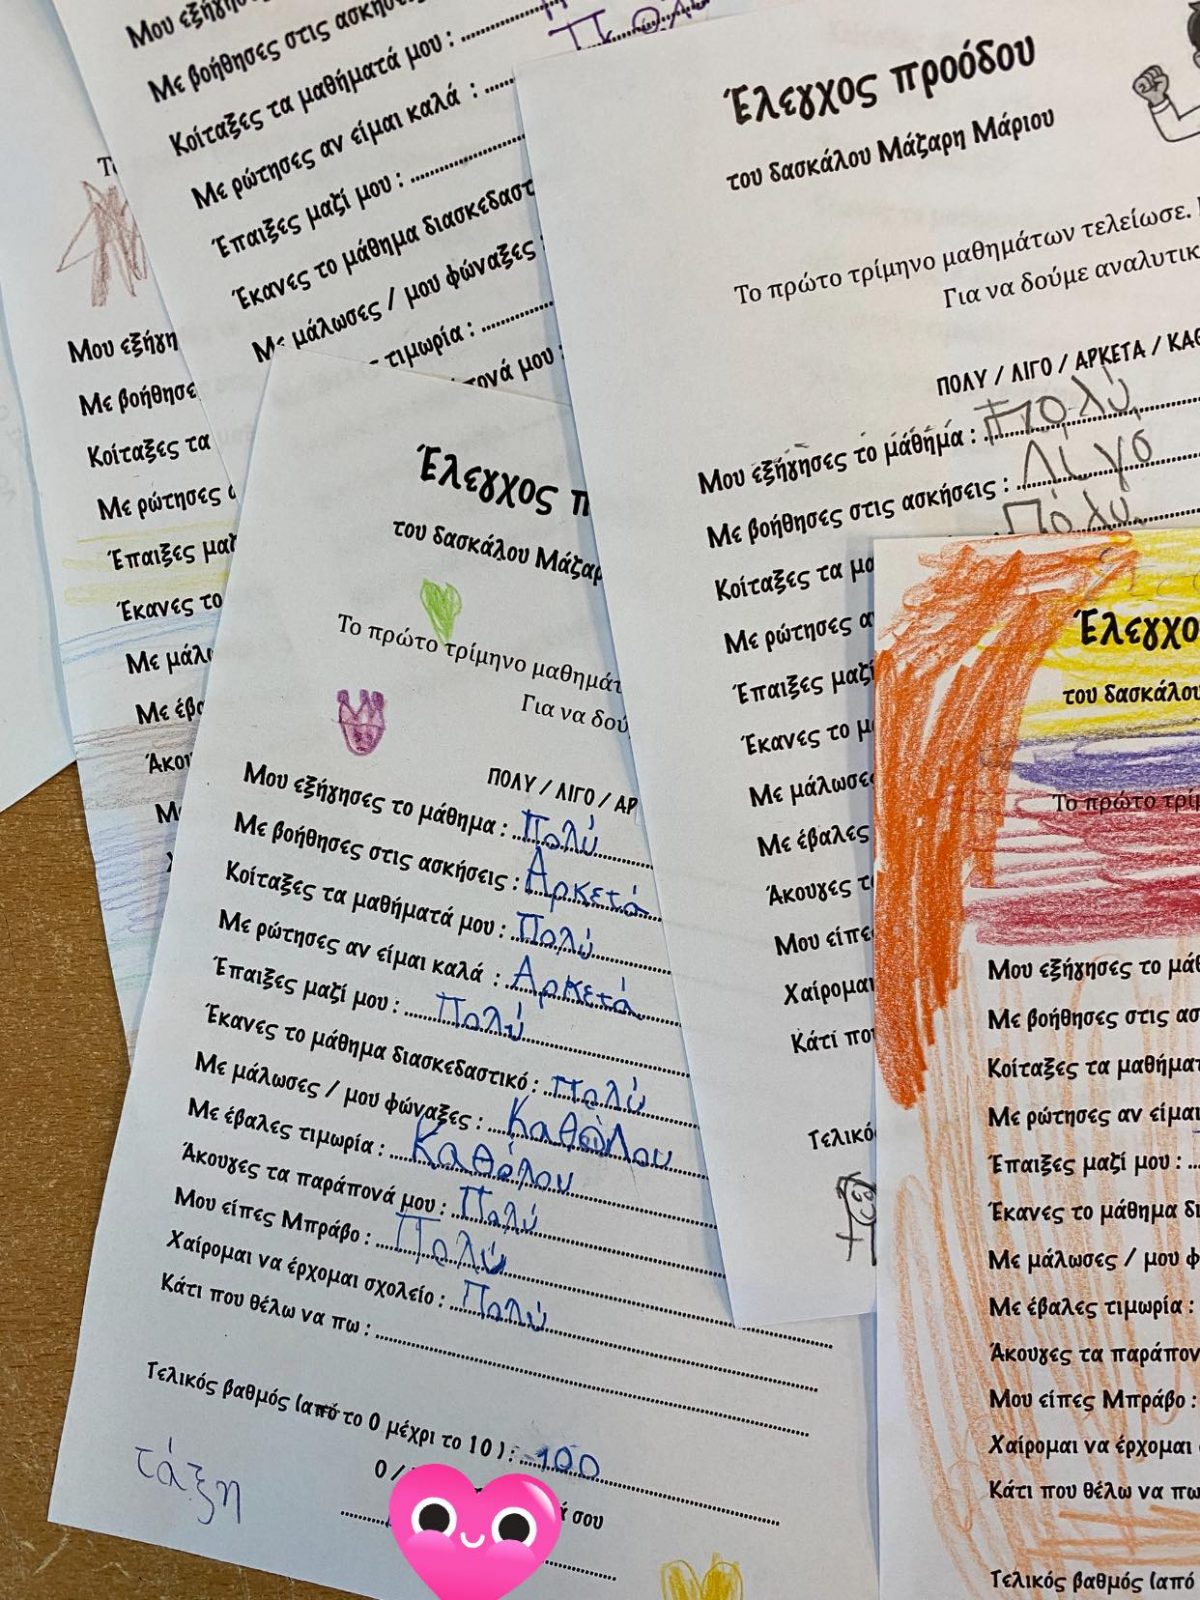 Μου εξήγησ
Με βοήθησες στις ασκήσ
Κοίταξες τα μαθήματά μου :
Με ρώτησες αν είμαι καλά :
Έπαιξες μαζί μου :
Έκανες το μάθημα διασκεδαστ
Με μάλωσες / μου φώναξες :
τιμωρία :
ονά μου :
Το
Μου εξήγη
Με βοήθησε
Κοίταξες τα
Με ρώτησες
Έπαιξες μαζ
Έκανες το
Με μάλ
Με έβ
Άκου
Μ
Έλεγχος προόδου
του δασκάλου Μάζαρη Μάριου
Το πρώτο τρίμηνο μαθημάτων τελείωσε.
Για να δούμε αναλυτικ
ΠΟΛΥ / ΛΙΓΟ / ΑΡΚΕΤΑ / ΚΑΘ
Μου εξήγησες το μάθημα : Πολύ
Με βοήθησες στις ασκήσεις : Λίγο
Κοίταξες τα μα Πολύ
Με ρώτησες α
Έπαιξες μαζί
Έκανες το μ
Με μάλωσες
Με έβαλες
Άκουγες τ
Μου είπε
Χαίρομαι
Κάτι πο
Τελικό
Έλεγχος π
του δασκάλου Μάζαρ
Το πρώτο τρίμηνο μαθημάτ
Για να δού
ΠΟΛΥ / ΛΙΓΟ / ΑΡ
Μου εξήγησες το μάθημα : Πολύ
Με βοήθησες στις ασκήσεις : Αρκετά
Κοίταξες τα μαθήματά μου : Πολύ
Με ρώτησες αν είμαι καλά : Αρκετά
Έπαιξες μαζί μου : Πολύ
Έκανες το μάθημα διασκεδαστικό : Πολύ
Με μάλωσες / μου φώναξες : Καθόλου
Με έβαλες τιμωρία : Καθόλου
Άκουγες τα παράπονά μου : Πολύ
Μου είπες Μπράβο : Πολύ
Χαίρομαι να έρχομαι σχολείο : Πολύ
Κάτι που θέλω να πω :
Τελικός βαθμός (από το 0 μέχρι το 10 ) : 100
0 /
ά σου
τάξη
Έλεγχο
του δασκάλου
Το πρώτο τρίμ
Μου εξήγησες το μάθ
Με βοήθησες στις ασ
Κοίταξες τα μαθήματ
Με ρώτησες αν είμαι
Έπαιξες μαζί μου :
Έκανες το μάθημα δι
Με μάλωσες / μου φ
Με έβαλες τιμωρία :
Άκουγες τα παράπον
Μου είπες Μπράβο :
Χαίρομαι να έρχομαι
Κάτι που θέλω να πω
Τελικός βαθμός (από